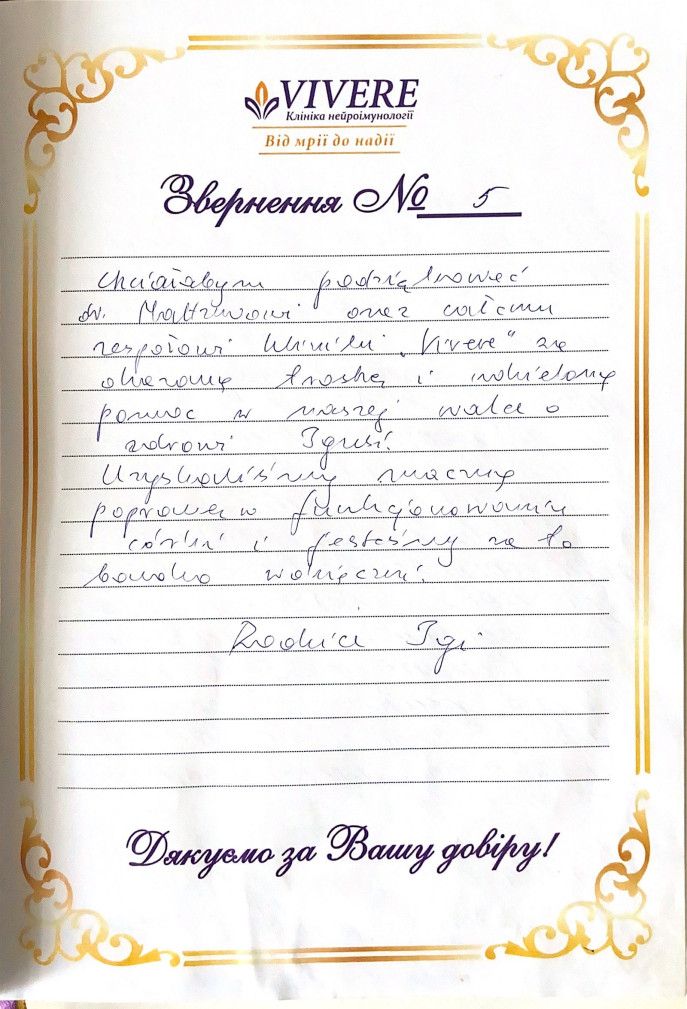 VIVERE
Клініка нейроімунології
Від мрії до надії
Звернення № 5
Chciałabym podziękować
dr. Maltsevowi oraz całemu
zespołowi kliniki „Vivere" za
okazaną troskę i udzieloną
pomoc w naszej walce o
zdrowi Igusi.
Uzyskaliśmy znaczną
poprawę w funkcjonowaniu
córki i jesteśmy za to
bardzo wdzięczni.
Rodzice Igi
Дякуємо за Вашу довіру!